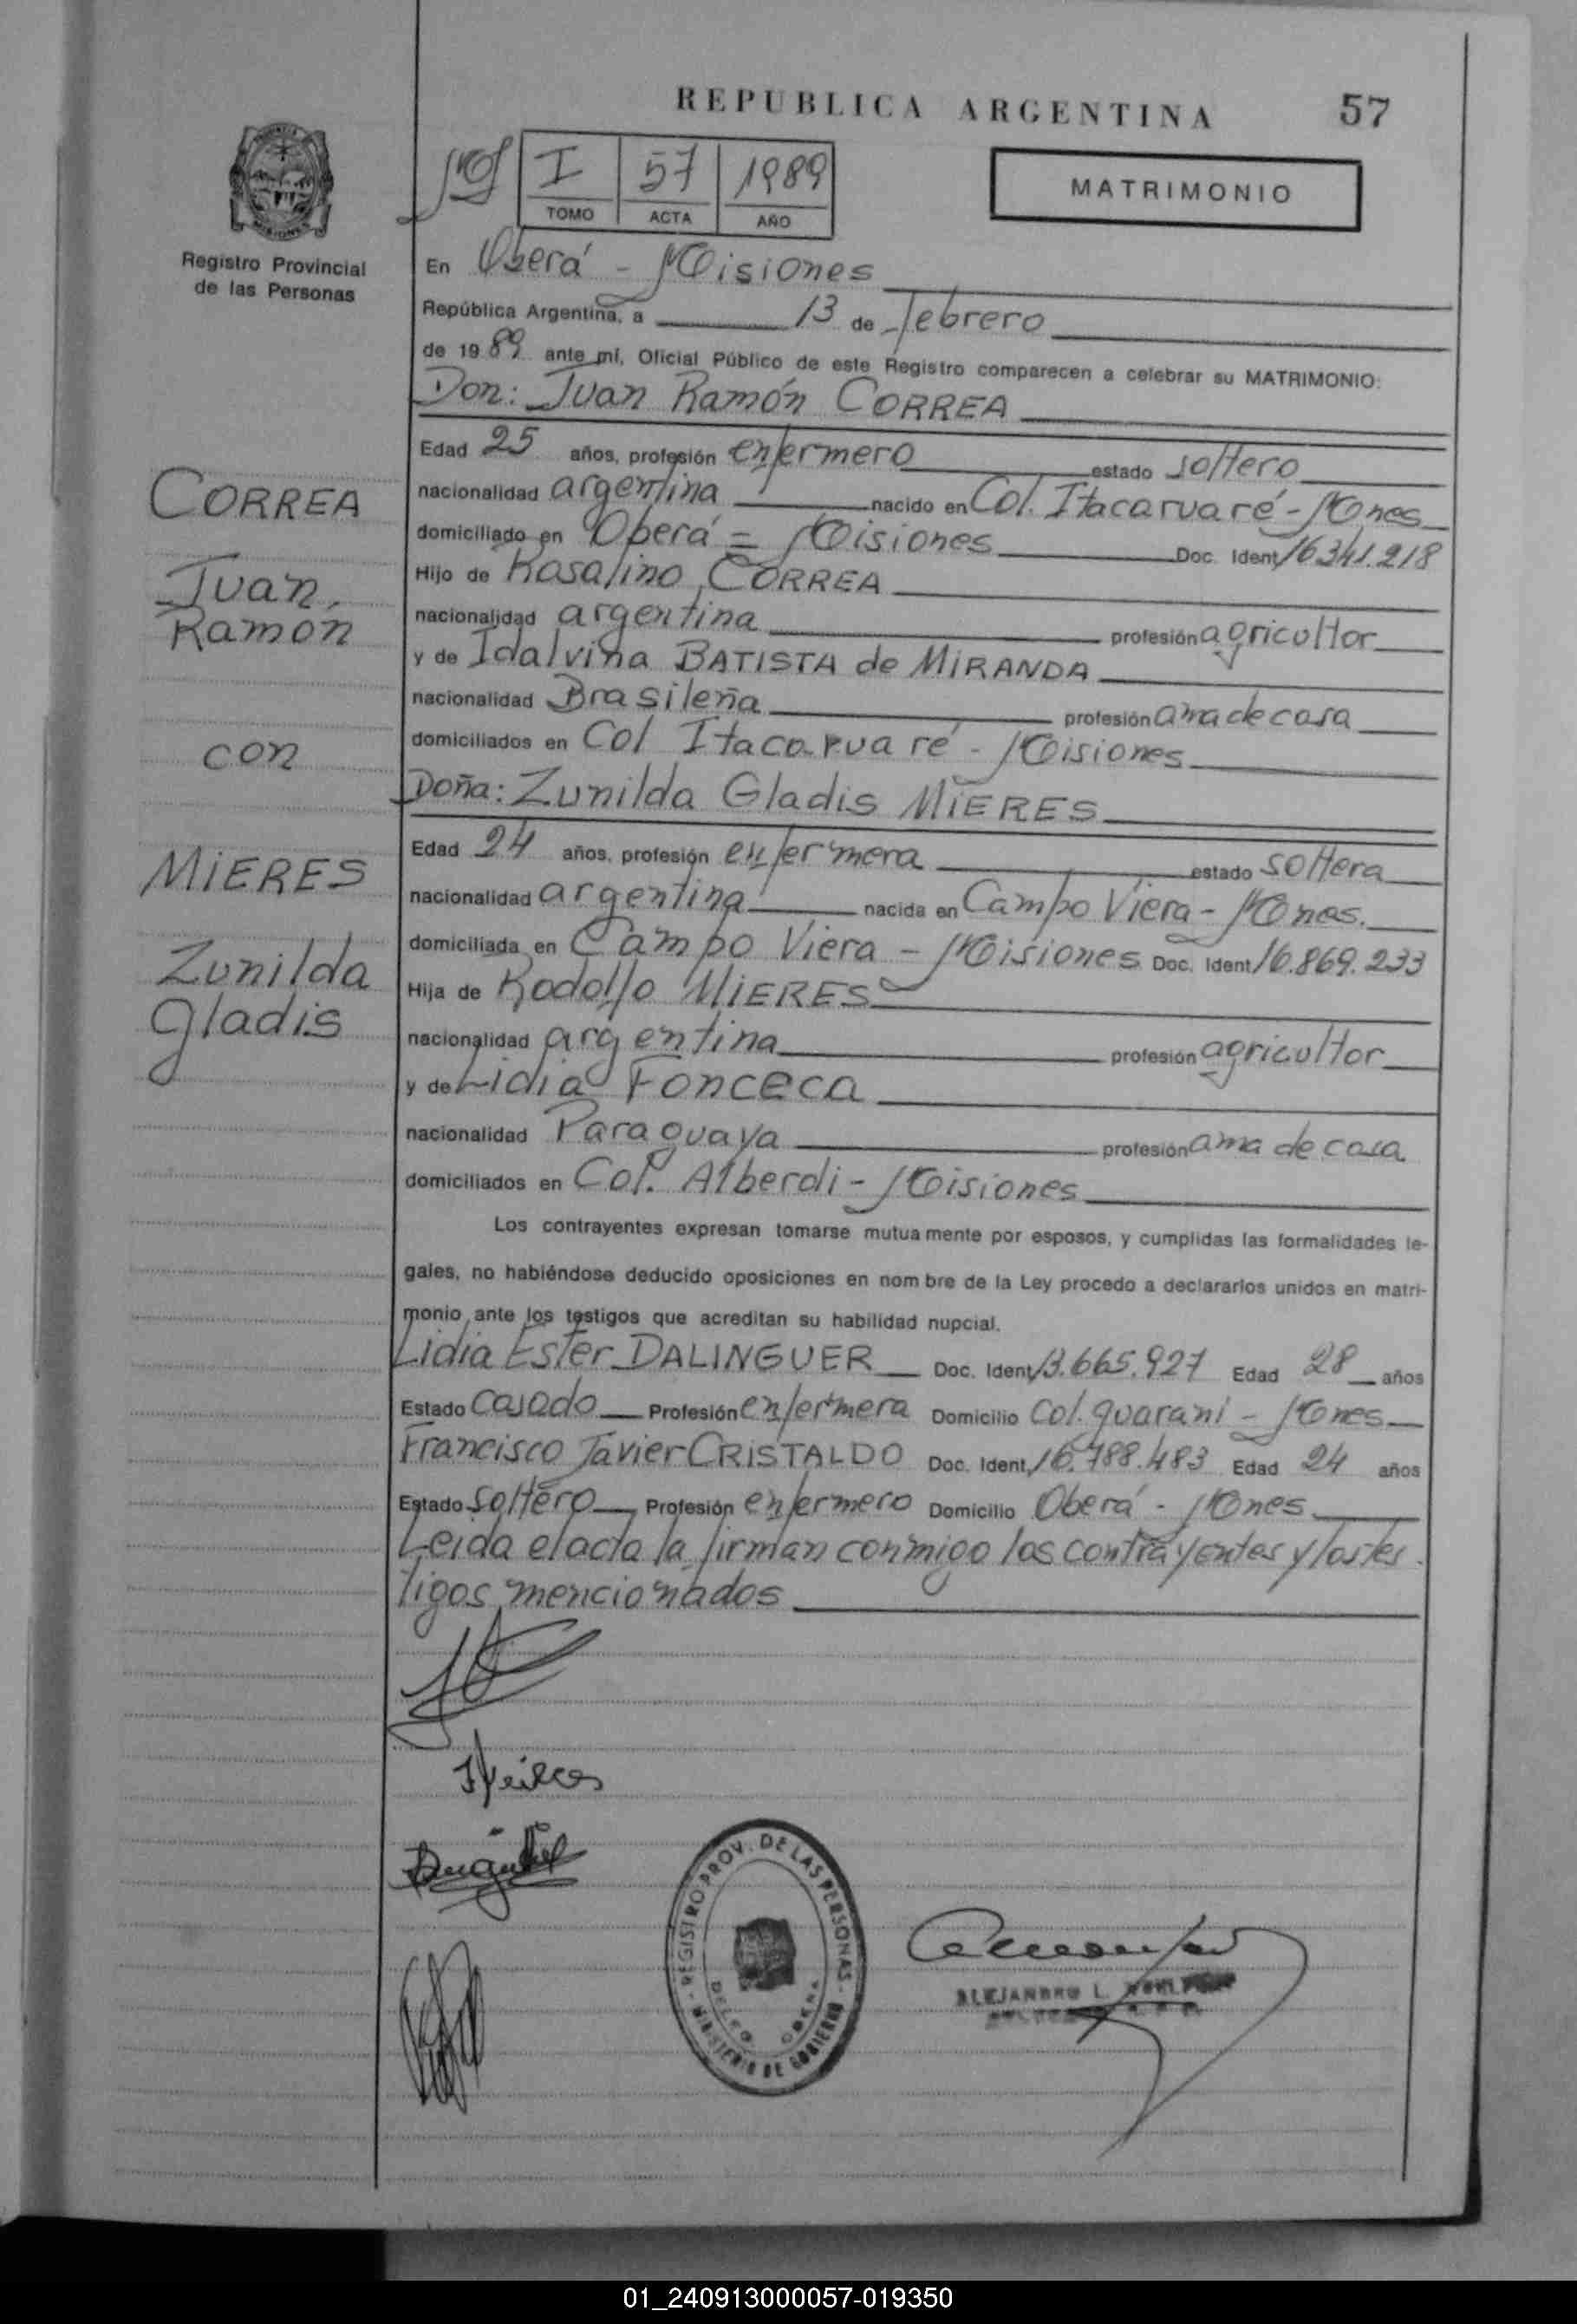 REPUBLICA ARGENTINA 57
I 57 1989
TOMO ACTA AÑO
MATRIMONIO
Registro Provincial
de las Personas
En Oberá - Misiones
República Argentina, a 13 de febrero
de 1989 ante mí, Oficial Público de este Registro comparecen a celebrar su MATRIMONIO:
Don: Juan Ramón CORREA
Edad 25 años, profesión enfermero estado soltero
nacionalidad argentina nacido en Col. Itacaruaré - Mones
domiciliado en Oberá = Misiones Doc. Ident 16341.218
Hijo de Rosalino CORREA
nacionalidad argentina profesión agricultor
y de Idalvina BATISTA de MIRANDA
nacionalidad Brasileña profesión ama de casa
domiciliados en Col Itacaruaré - Misiones
Doña: Zunilda Gladis MIERES
Edad 24 años, profesión enfermera estado soltera
nacionalidad argentina nacida en Campo Viera - Mones.
domiciliada en Campo Viera - Misiones Doc. Ident 16.869.233
Hija de Rodolfo MIERES
nacionalidad argentina profesión agricultor
y de Lidia FONCECA
nacionalidad Paraguaya profesión ama de casa
domiciliados en Col. Alberdi - Misiones
Los contrayentes expresan tomarse mutua mente por esposos, y cumplidas las formalidades le-
gales, no habiéndose deducido oposiciones en nom bre de la Ley procedo a declararlos unidos en matri-
monio ante los testigos que acreditan su habilidad nupcial.
Lidia Ester DALINGUER Doc. Ident 13.665.927 Edad 28 años
Estado casado Profesión enfermera Domicilio Col. guarani - Mones
Francisco Javier CRISTALDO Doc. Ident. 16.788.483 Edad 24 años
Estado soltero Profesión enfermero Domicilio Oberá - Mones
Leida el acta la firman conmigo los contrayentes y los tes
tigos mencionados
CORREA
Juan
Ramón
con
MIERES
Zunilda
Gladis
REGISTRO PROV. DE LAS PERSONAS
MINISTERIO DE GOBIERNO
ALEJANDRO L.
01_240913000057-019350